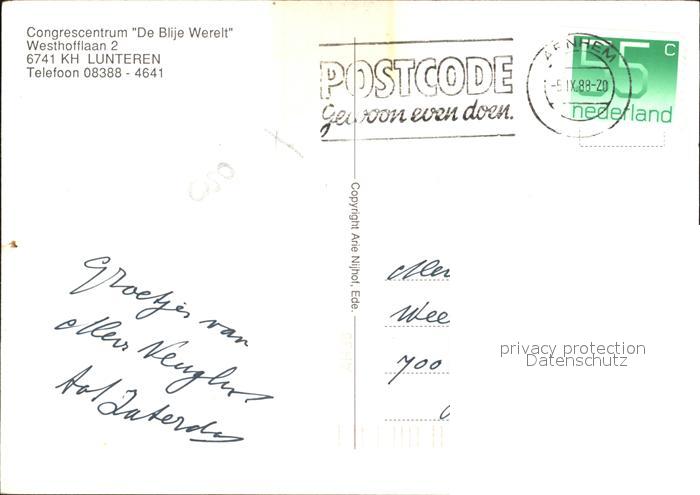 Congrescentrum "De Blije Werelt"
Westhofflaan 2
6741 KH LUNTEREN
Telefoon 08388 - 4641
POSTCODE
Gewoon even doen.
ARNHEM
IX.88-20
55 c
nederland
050
Copyright Arie Nijhof, Ede.
Groetjes van
tot Zaterdag
Wee
700
privacy protection
Datenschutz